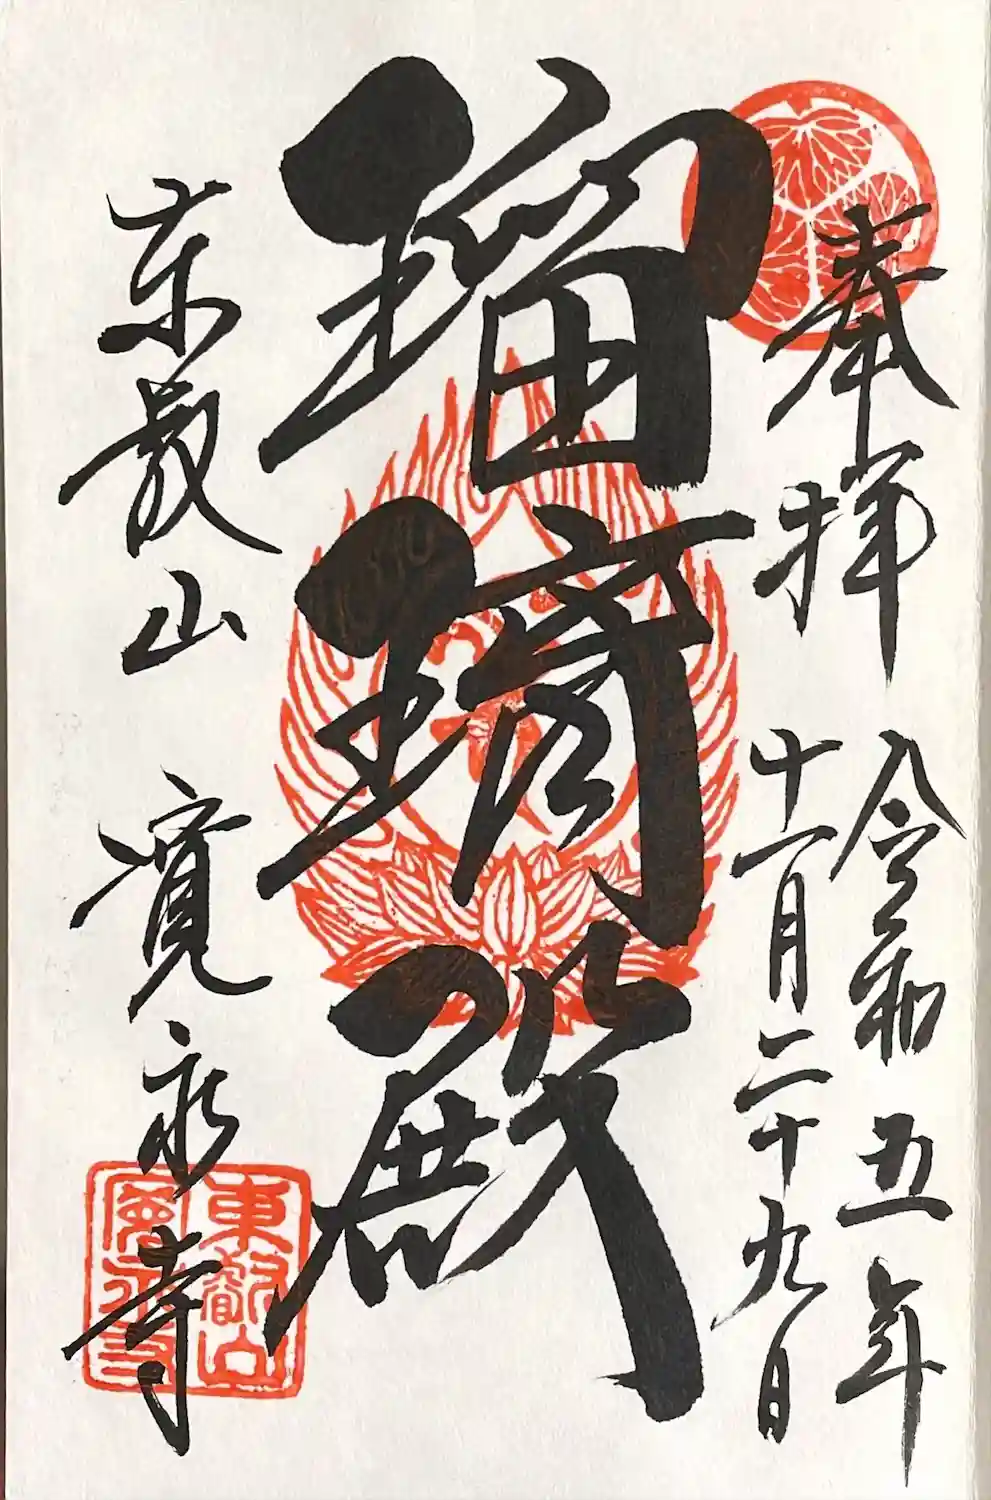 奉拝
令和五年
十一月二十九日
瑠璃殿
東叡山 寛永寺
東叡山
寛永寺